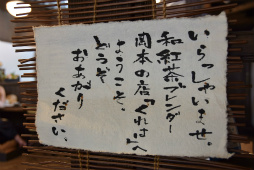 いらっしゃいませ。
和紅茶ブレンダー
岡本の店「くれは」へ
ようこそ。
どうぞ
おあがり
ください。